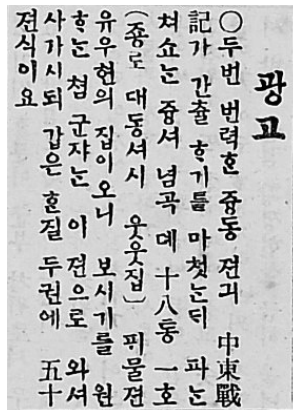 광고
○두번 번력ᄒᆞᆫ 즁동 젼긔 中東戰
記가 간츌 ᄒᆞ기를 마쳣ᄂᆞᄃᆡ 파ᄂᆞᆫ
쳐쇼ᄂᆞᆫ 즁셔 념곡 뎨 十八통 一호
(죵로 대동셔시 웃웃집) 퓌물젼
유우현의 집이오니 보시기를 원
ᄒᆞᄂᆞᆫ 쳠 군ᄌᆞᄂᆞᆫ 이 젼으로 와셔
사가시되 갑은 ᄒᆞᆫ질 두권에 五十
젼식이요